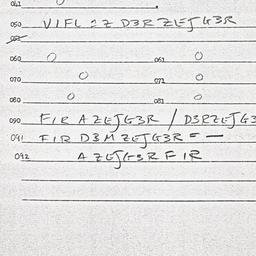 041
050 VIFL :Z D3RZEJG3R
052
060 O 061 O
070 O 071 O
080 O 081 O
090 FIR A ZEJG3R / D3RZEJG3
091 FIR D3M ZEJG3R = —
092 A ZEJG3R FIR